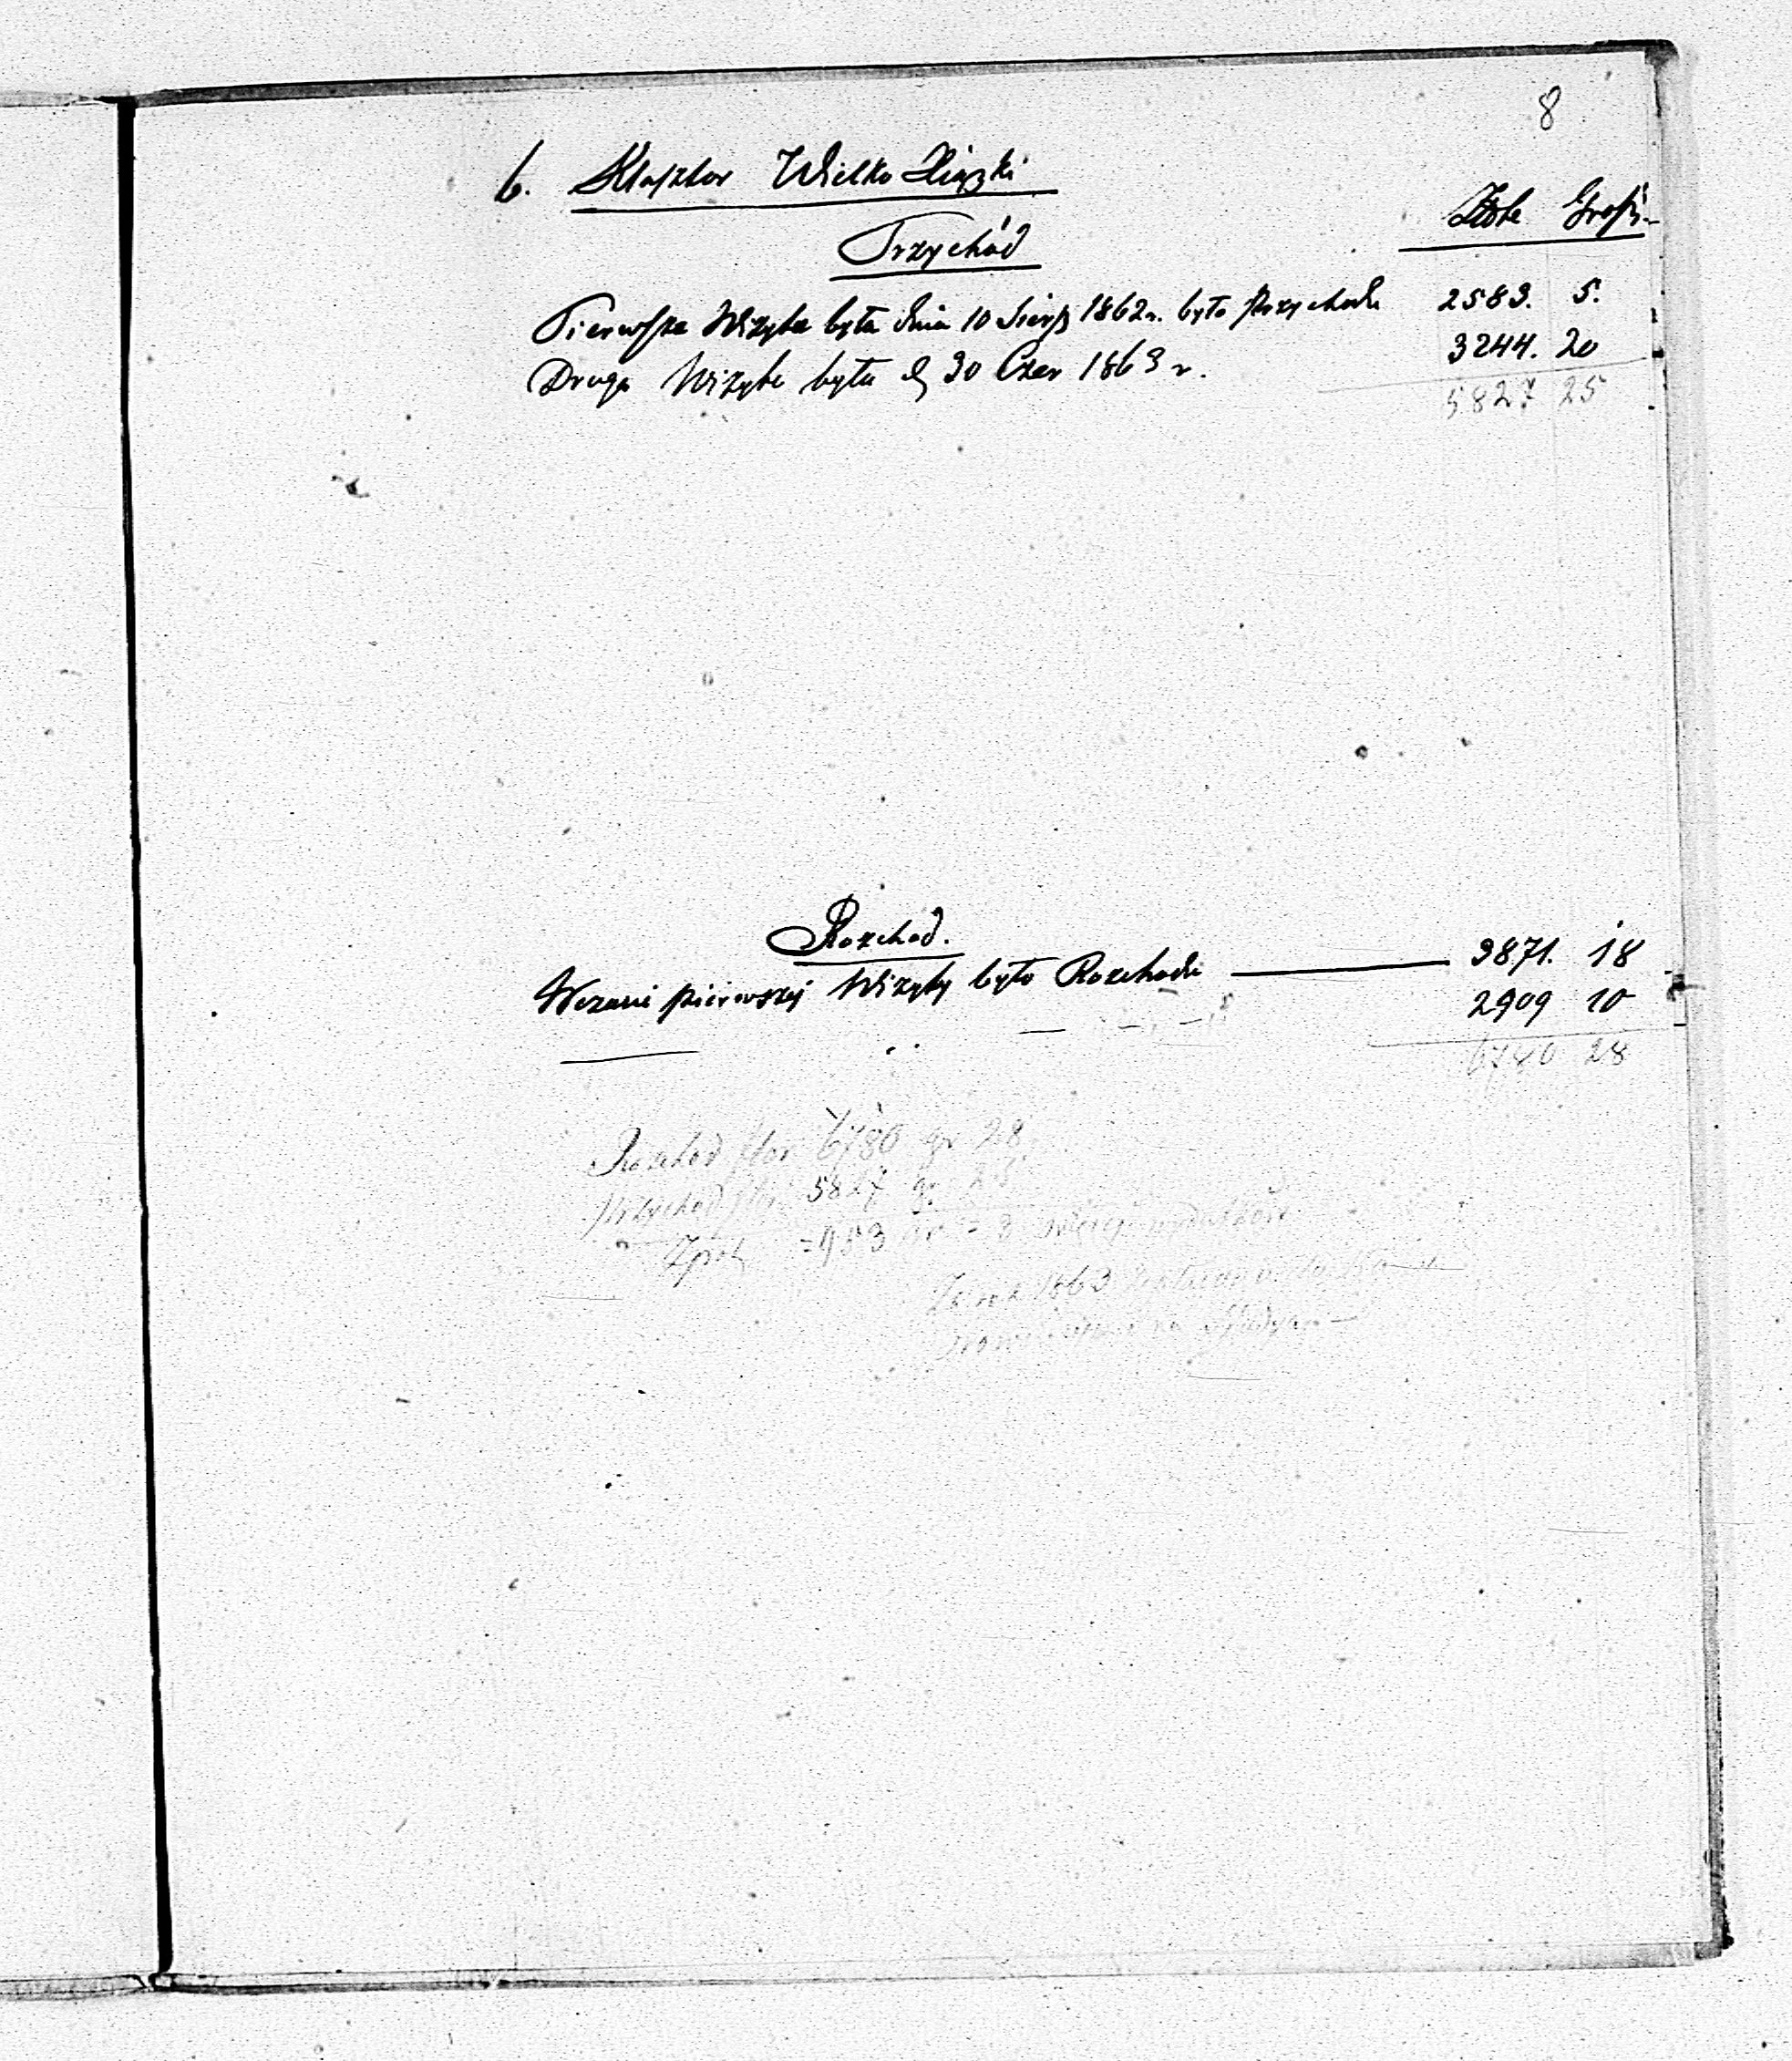 8
6. Klasztor Wielko Xiązki
Złote Grosz.
Przychód
Pierwsza Wizyta była dnia 10 Sierp 1862 r. było Przychodu 2583. 5.
Druga Wizyta była d 30 Czer 1863 r. 3244. 20
5827 25
Rozchod.
Wczasie pierwszej Wizyty było Rozchodu — 3871. 18
2909 10
6780 28
Rozchod 6780 gr 28
Przychod 5827 gr 25
= 953 gr = 3 więcej
Za rok 1863
na